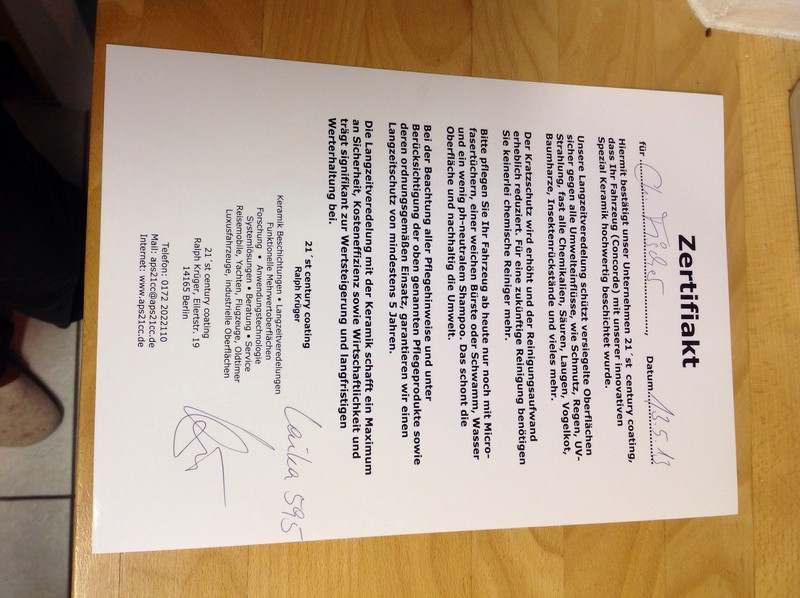 Zertifiakt
für ........................................, Datum.................
13.5.13
Hiermit bestätigt unser Unternehmen 21´st century coating,
dass Ihr Fahrzeug (Concorde) mit unserer innovativen
Spezial Keramik hochwertig beschichtet wurde.
Unsere Langzeitveredelung schützt versiegelte Oberflächen
sicher gegen alle Umwelteinflüsse, wie Schmutz, Regen, UV-
Strahlung, fast alle Chemikalien, Säuren, Laugen, Vogelkot,
Baumharze, Insektenrückstände und vieles mehr.
Der Kratzschutz wird erhöht und der Reinigungsaufwand
erheblich reduziert. Für eine zukünftige Reinigung benötigen
Sie keinerlei chemische Reiniger mehr.
Bitte pflegen Sie Ihr Fahrzeug ab heute nur noch mit Micro-
fasertüchern, einer weichen Bürste oder Schwamm, Wasser
und ein wenig ph-neutralem Shampoo. Das schont die
Oberfläche und nachhaltig die Umwelt.
Bei der Beachtung aller Pflegehinweise und unter
Berücksichtigung der oben genannten Pflegeprodukte sowie
deren ordnungsgemäßen Einsatz, garantieren wir einen
Langzeitschutz von mindestens 5 Jahren.
Die Langzeitveredelung mit der Keramik schafft ein Maximum
an Sicherheit, Kosteneffizienz sowie Wirtschaftlichkeit und
trägt signifikant zur Wertsteigerung und langfristigen
Werterhaltung bei.
21´st century coating
Ralph Krüger
Keramik Beschichtungen • Langzeitveredelungen
Funktionelle Mehrwertoberflächen
Forschung • Anwendungstechnologie
Systemlösungen • Beratung • Service
Reisemobile, Yachten, Flugzeuge, Oldtimer
Luxusfahrzeuge, industrielle Oberflächen
Laika 595
21´st century coating
Ralph Krüger, Eilertstr. 19
14165 Berlin
Telefon: 0172 2022110
Mail: aps21cc@aps21cc.de
Internet: www.aps21cc.de